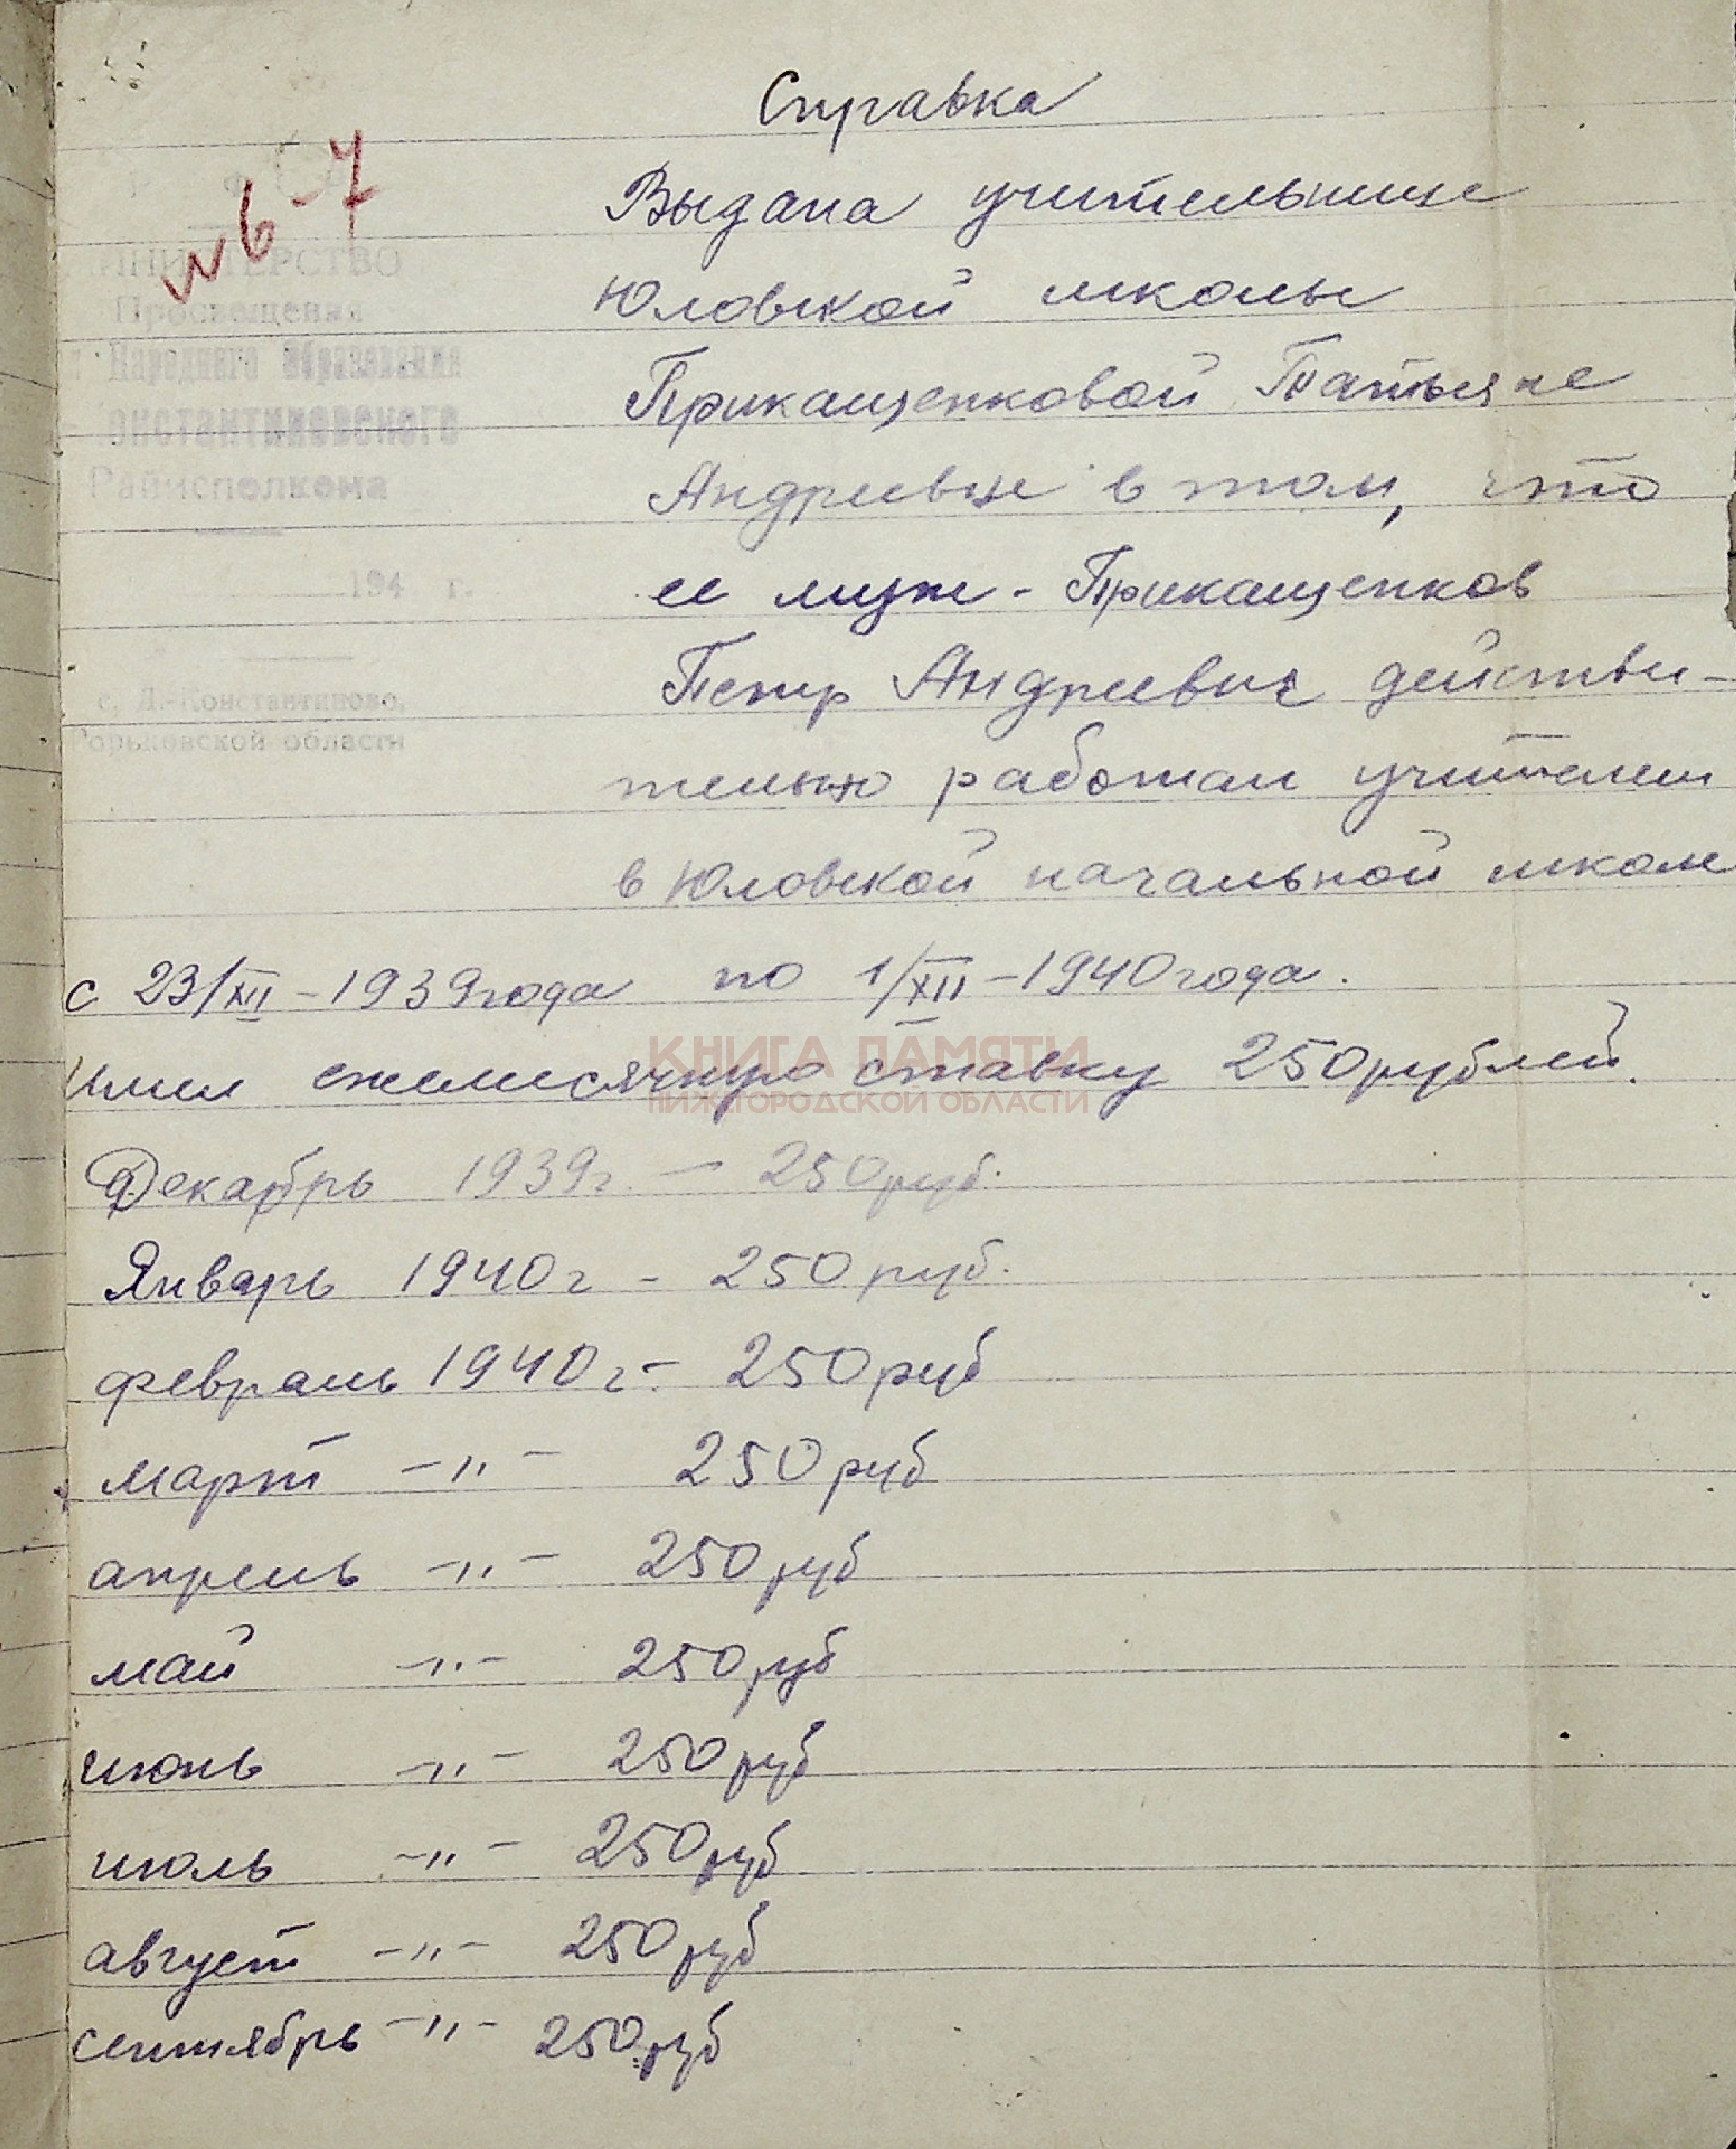 Справка
№ 6-7
Выдана учительнице
Юловской школы
Прикащенковой Татьяне
Андреевне в том, что
ее муж - Прикащенков
Петр Андреевич действи-
тельно работал учителем
в Юловской начальной школе
МИНИСТЕРСТВО
Просвещения
Народного Образования
онстантиновского
Райисполкома
194 г.
с. Д.-Константиново,
Горьковской области
с 23/XII - 1939 года по 1/XII - 1940 года.
Имел ежемесячную ставку 250 рублей.
КНИГА ПАМЯТИ
НИЖЕГОРОДСКОЙ ОБЛАСТИ
Декабрь 1939 г. - 250 руб.
Январь 1940 г - 250 руб.
февраль 1940 г. - 250 руб
март -"- 250 руб
апрель -"- 250 руб
май -"- 250 руб
июнь -"- 250 руб
июль -"- 250 руб
август -"- 250 руб
сентябрь -"- 250 руб